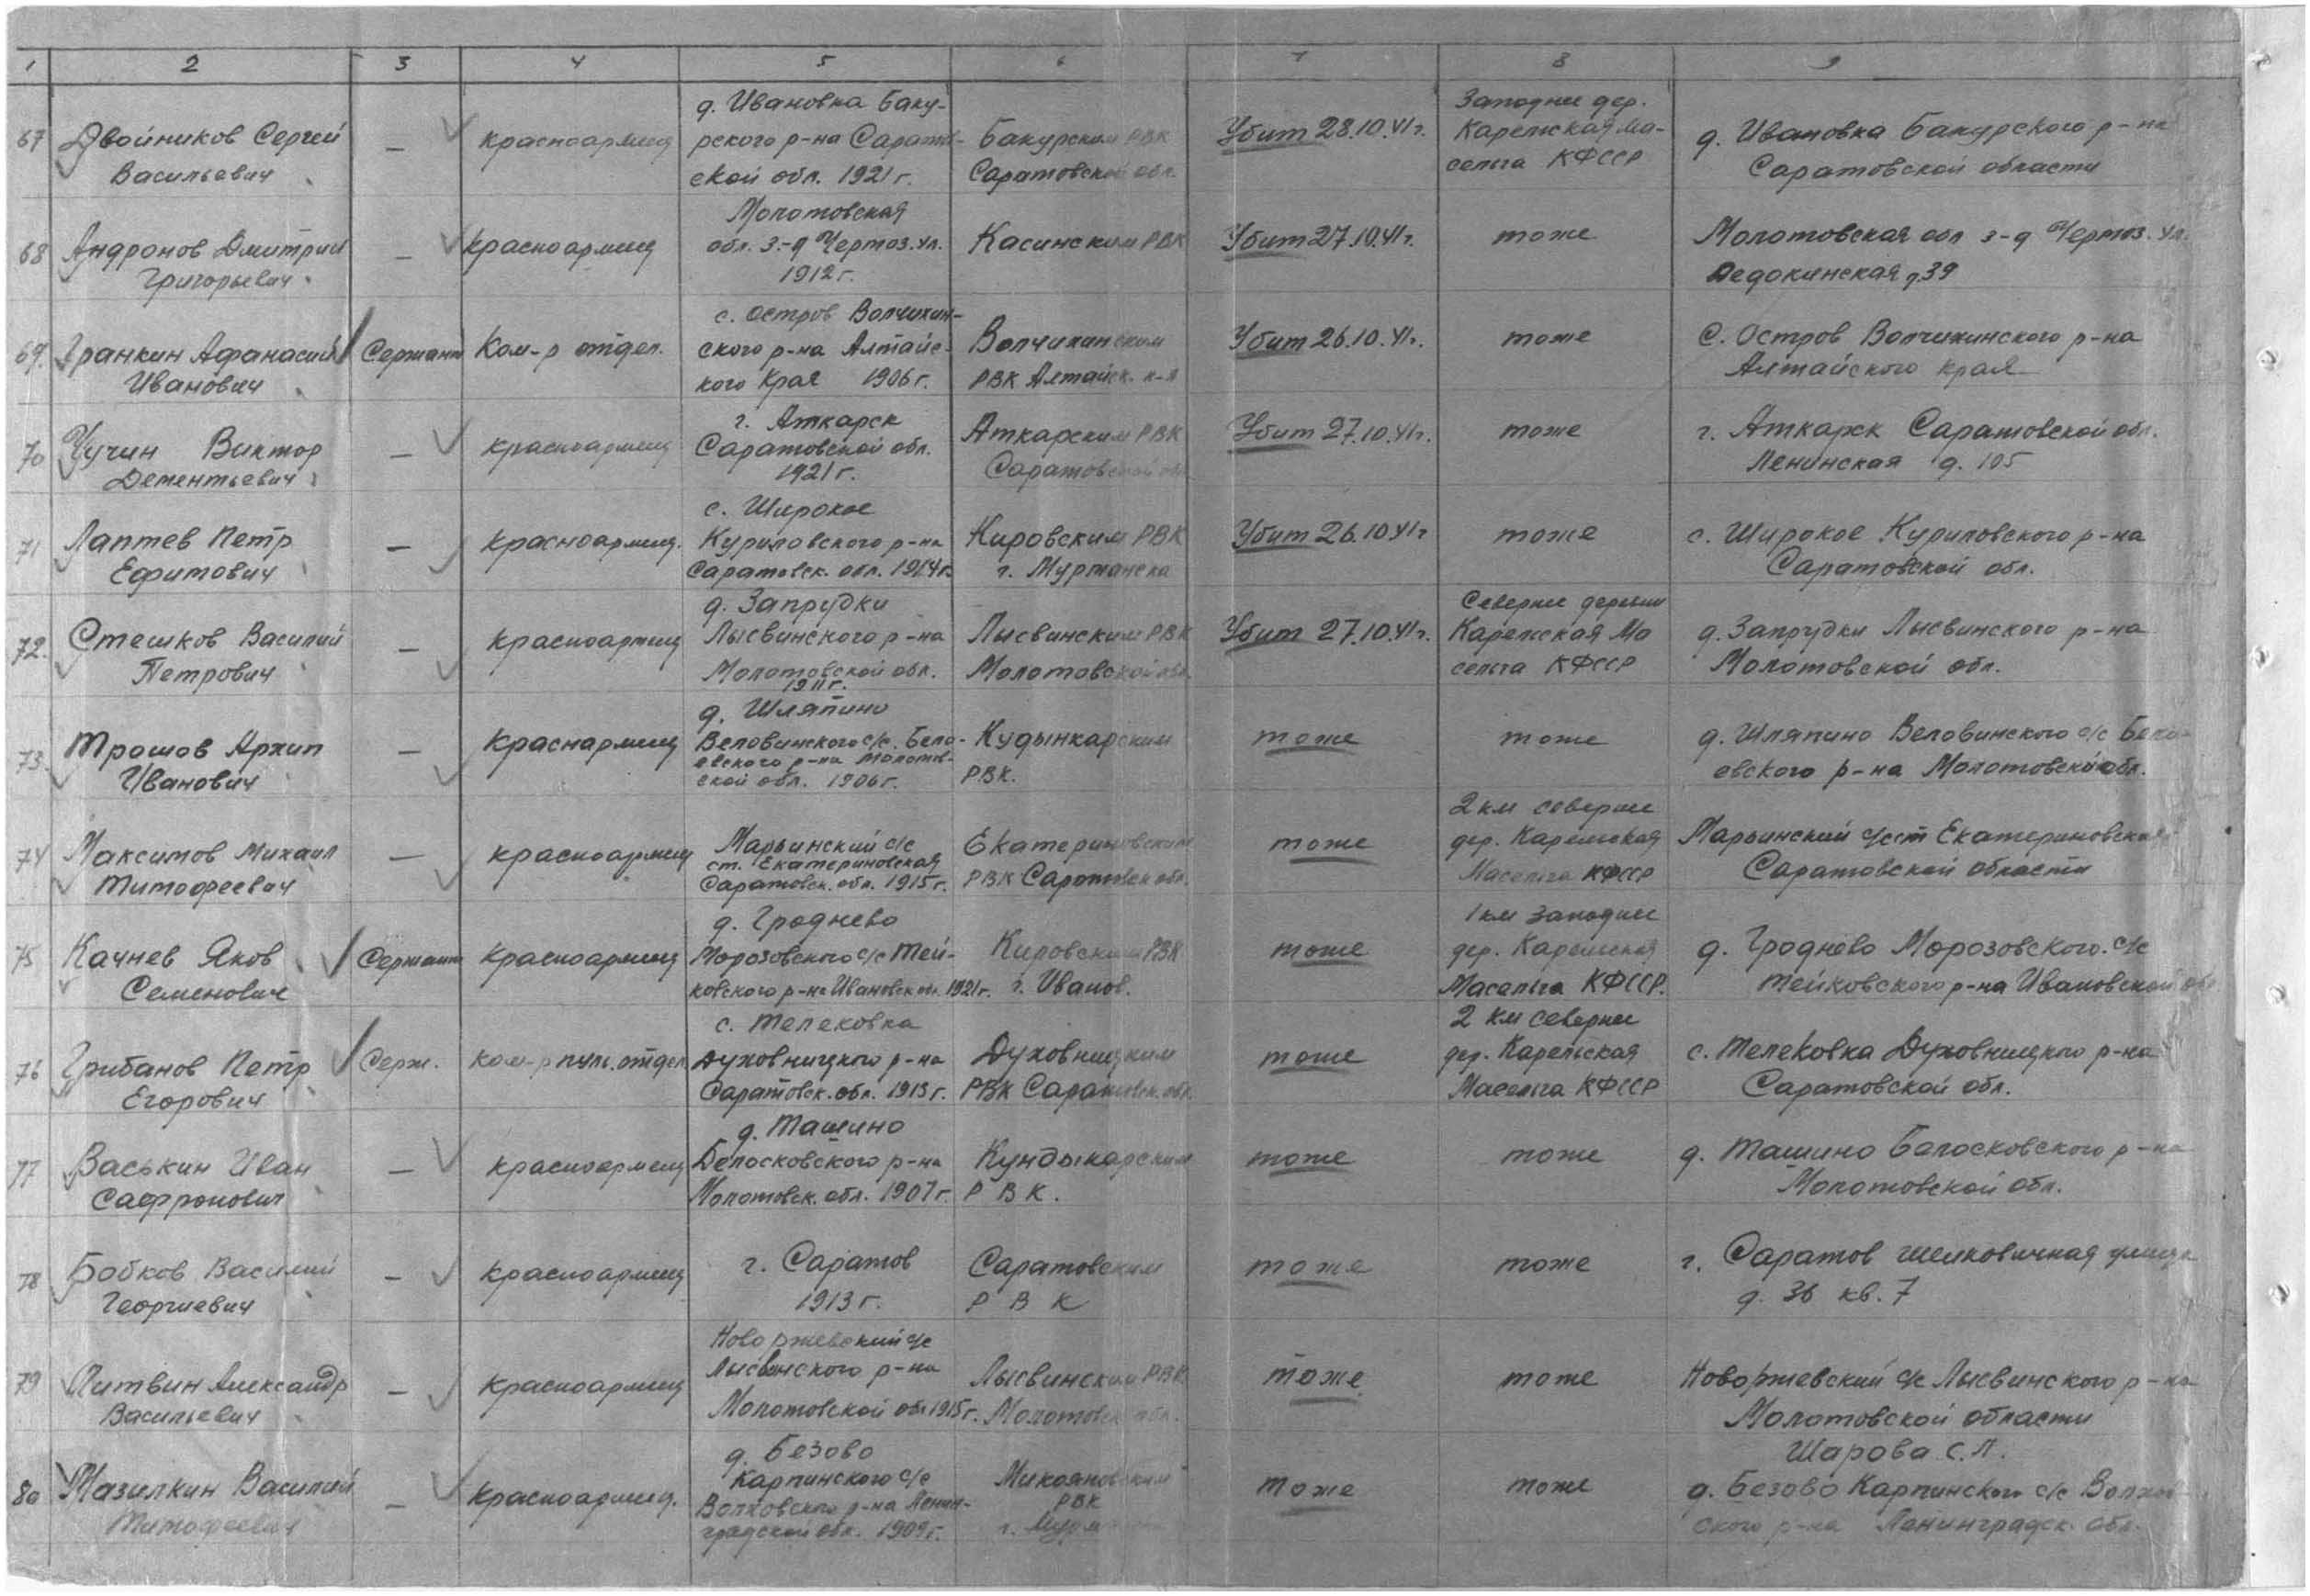 1 2 3 4 5 6 7 8 9
67 Двойников Сергей Васильевич — красноармеец д. Ивановка Баку-
рского р-на Саратов-
ской обл. 1921 г. Бакурским РВК
Саратовской обл. Убит 28.10.41г. Западнее дер.
Карельская Ма-
сельга КФССР д. Ивановка Бакурского р-на
Саратовской области
68 Андронов Дмитрий
Григорьевич — красноармеец Молотовская
обл. з-д Чермоз. ул.
1912 г. Касинским РВК Убит 27.10.41г. тоже Молотовская обл з-д Чермоз. ул.
д 39
69. Гранкин Афанасий
Иванович Сержант Ком-р отдел. с. Остров Волчихин-
ского р-на Алтайс-
кого Края 1906 г. Волчихинским
РВК Алтайск. к-я Убит 26.10.41г. тоже С. Остров Волчихинского р-на
Алтайского края
70 Чучин Виктор
Дементьевич — красноармеец г. Аткарск
Саратовской обл.
1921 г. Аткарским РВК
Саратовской обл Убит 27.10.41г. тоже г. Аткарск Саратовской обл.
Ленинская д. 105
71 Лаптев Петр
Ефимович — красноармеец. с. Широкое
Куриловского р-на
Саратовск. обл. 1914г. Кировским РВК
г. Мурманска Убит 26.10.41г тоже с. Широкое Куриловского р-на
Саратовской обл.
72. Стешков Василий
Петрович — красноармеец д. Запрудки
Лысвинского р-на
Молотовской обл.
1911 г. Лысвинским РВК
Молотовской обл. Убит 27.10.41г. Севернее деревни
Карельская Ма
сельга КФССР д. Запрудки Лысвинского р-на
Молотовской обл.
73. Трошов Архип
Иванович — Краснармеец д. Шляпино
Веловинского с/с. Бело-
евского р-на Молотов-
ской обл. 1906 г. Кудынкарским
РВК. тоже тоже д. Шляпино Веловинского с/с Бело-
евского р-на Молотовской обл.
74 Максимов Михаил
Тимофеевич — красноармеец Марьинский с/с
ст. Екатериновская
Саратовск. обл. 1915 г. Екатериновским
РВК Саратовск обл. тоже 2 км севернее
дер. Карельская
Масельга КФССР Марьинский с/с ст Екатериновская
Саратовской области
75 Качнев Яков
Семенович Сержант красноармеец д. Гроднево
Морозовского с/с Тей-
ковского р-на Ивановск обл. 1921г. Кировским РВК
г. Иванов. тоже 1 км западнее
дер. Карельская
Масельга КФССР. д. Гроднево Морозовского. с/с
Тейковского р-на Ивановской обл
76 Грибанов Петр
Егорович Серж. ком-р пул. отдел с. Телековка
Духовницкого р-на
Саратовск. обл. 1913 г. Духовницким
РВК Саратовск. обл. тоже 2 км севернее
дер. Карельская
Масельга КФССР с. Телековка Духовницкого р-на
Саратовской обл.
77 Васькин Иван
Сафронович — красноармеец д. Ташино
Белосковского р-на
Молотовск. обл. 1907 г. Кундыкарским
РВК. тоже тоже д. Ташино Балосковского р-на
Молотовской обл.
78 Бобков Василий
Георгиевич — красноармеец г. Саратов
1913 г. Саратовским
РВК тоже тоже г. Саратов шелковичная улица
д. 36 кв. 7
79 Литвин Александр
Васильевич — красноармеец Новоржевский с/с
Лысвинского р-на
Молотовской обл 1915 г. Лысвинским РВК
Молотовск обл. тоже тоже Новоржевский с/с Лысвинского р-на
Молотовской области
80 Мазилкин Василий
Тимофеевич — красноармеец. д. Безово
Карпинского с/с
Волховского р-на Ленин-
градской обл. 1909 г. Микояновским
РВК
г. тоже тоже Шарова С.Л.
д. Безово Карпинского с/с Волхов-
ского р-на Ленинградск. обл.